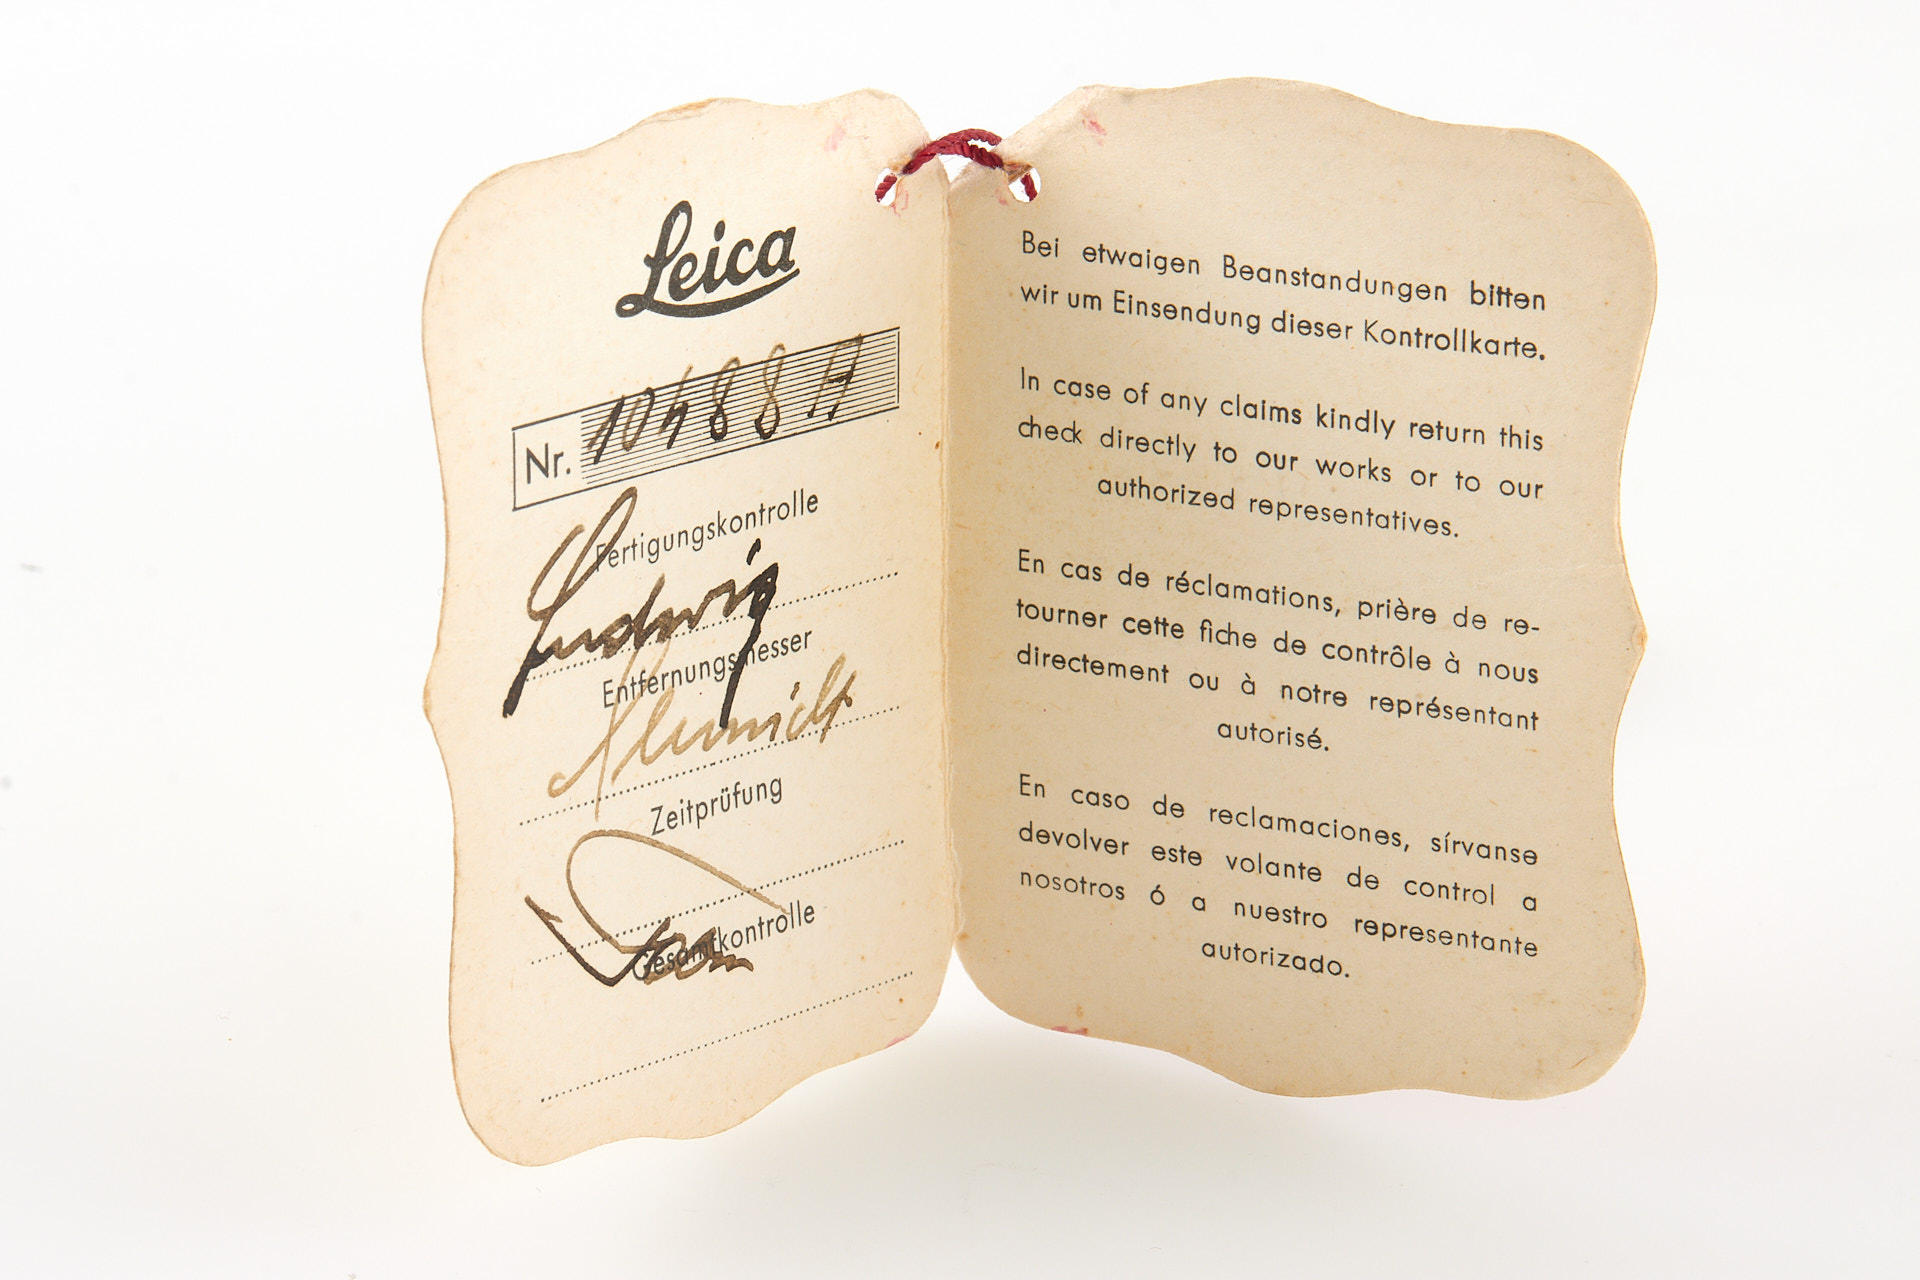 Leica
Nr. 10488A
Fertigungskontrolle
Ludwig
Entfernungsmesser
Zeitprüfung
Gesamtkontrolle
Bei etwaigen Beanstandungen bitten
wir um Einsendung dieser Kontrollkarte.
In case of any claims kindly return this
check directly to our works or to our
authorized representatives.
En cas de réclamations, prière de re-
tourner cette fiche de contrôle à nous
directement ou à notre représentant
autorisé.
En caso de reclamaciones, sírvanse
devolver este volante de control a
nosotros ó a nuestro representante
autorizado.